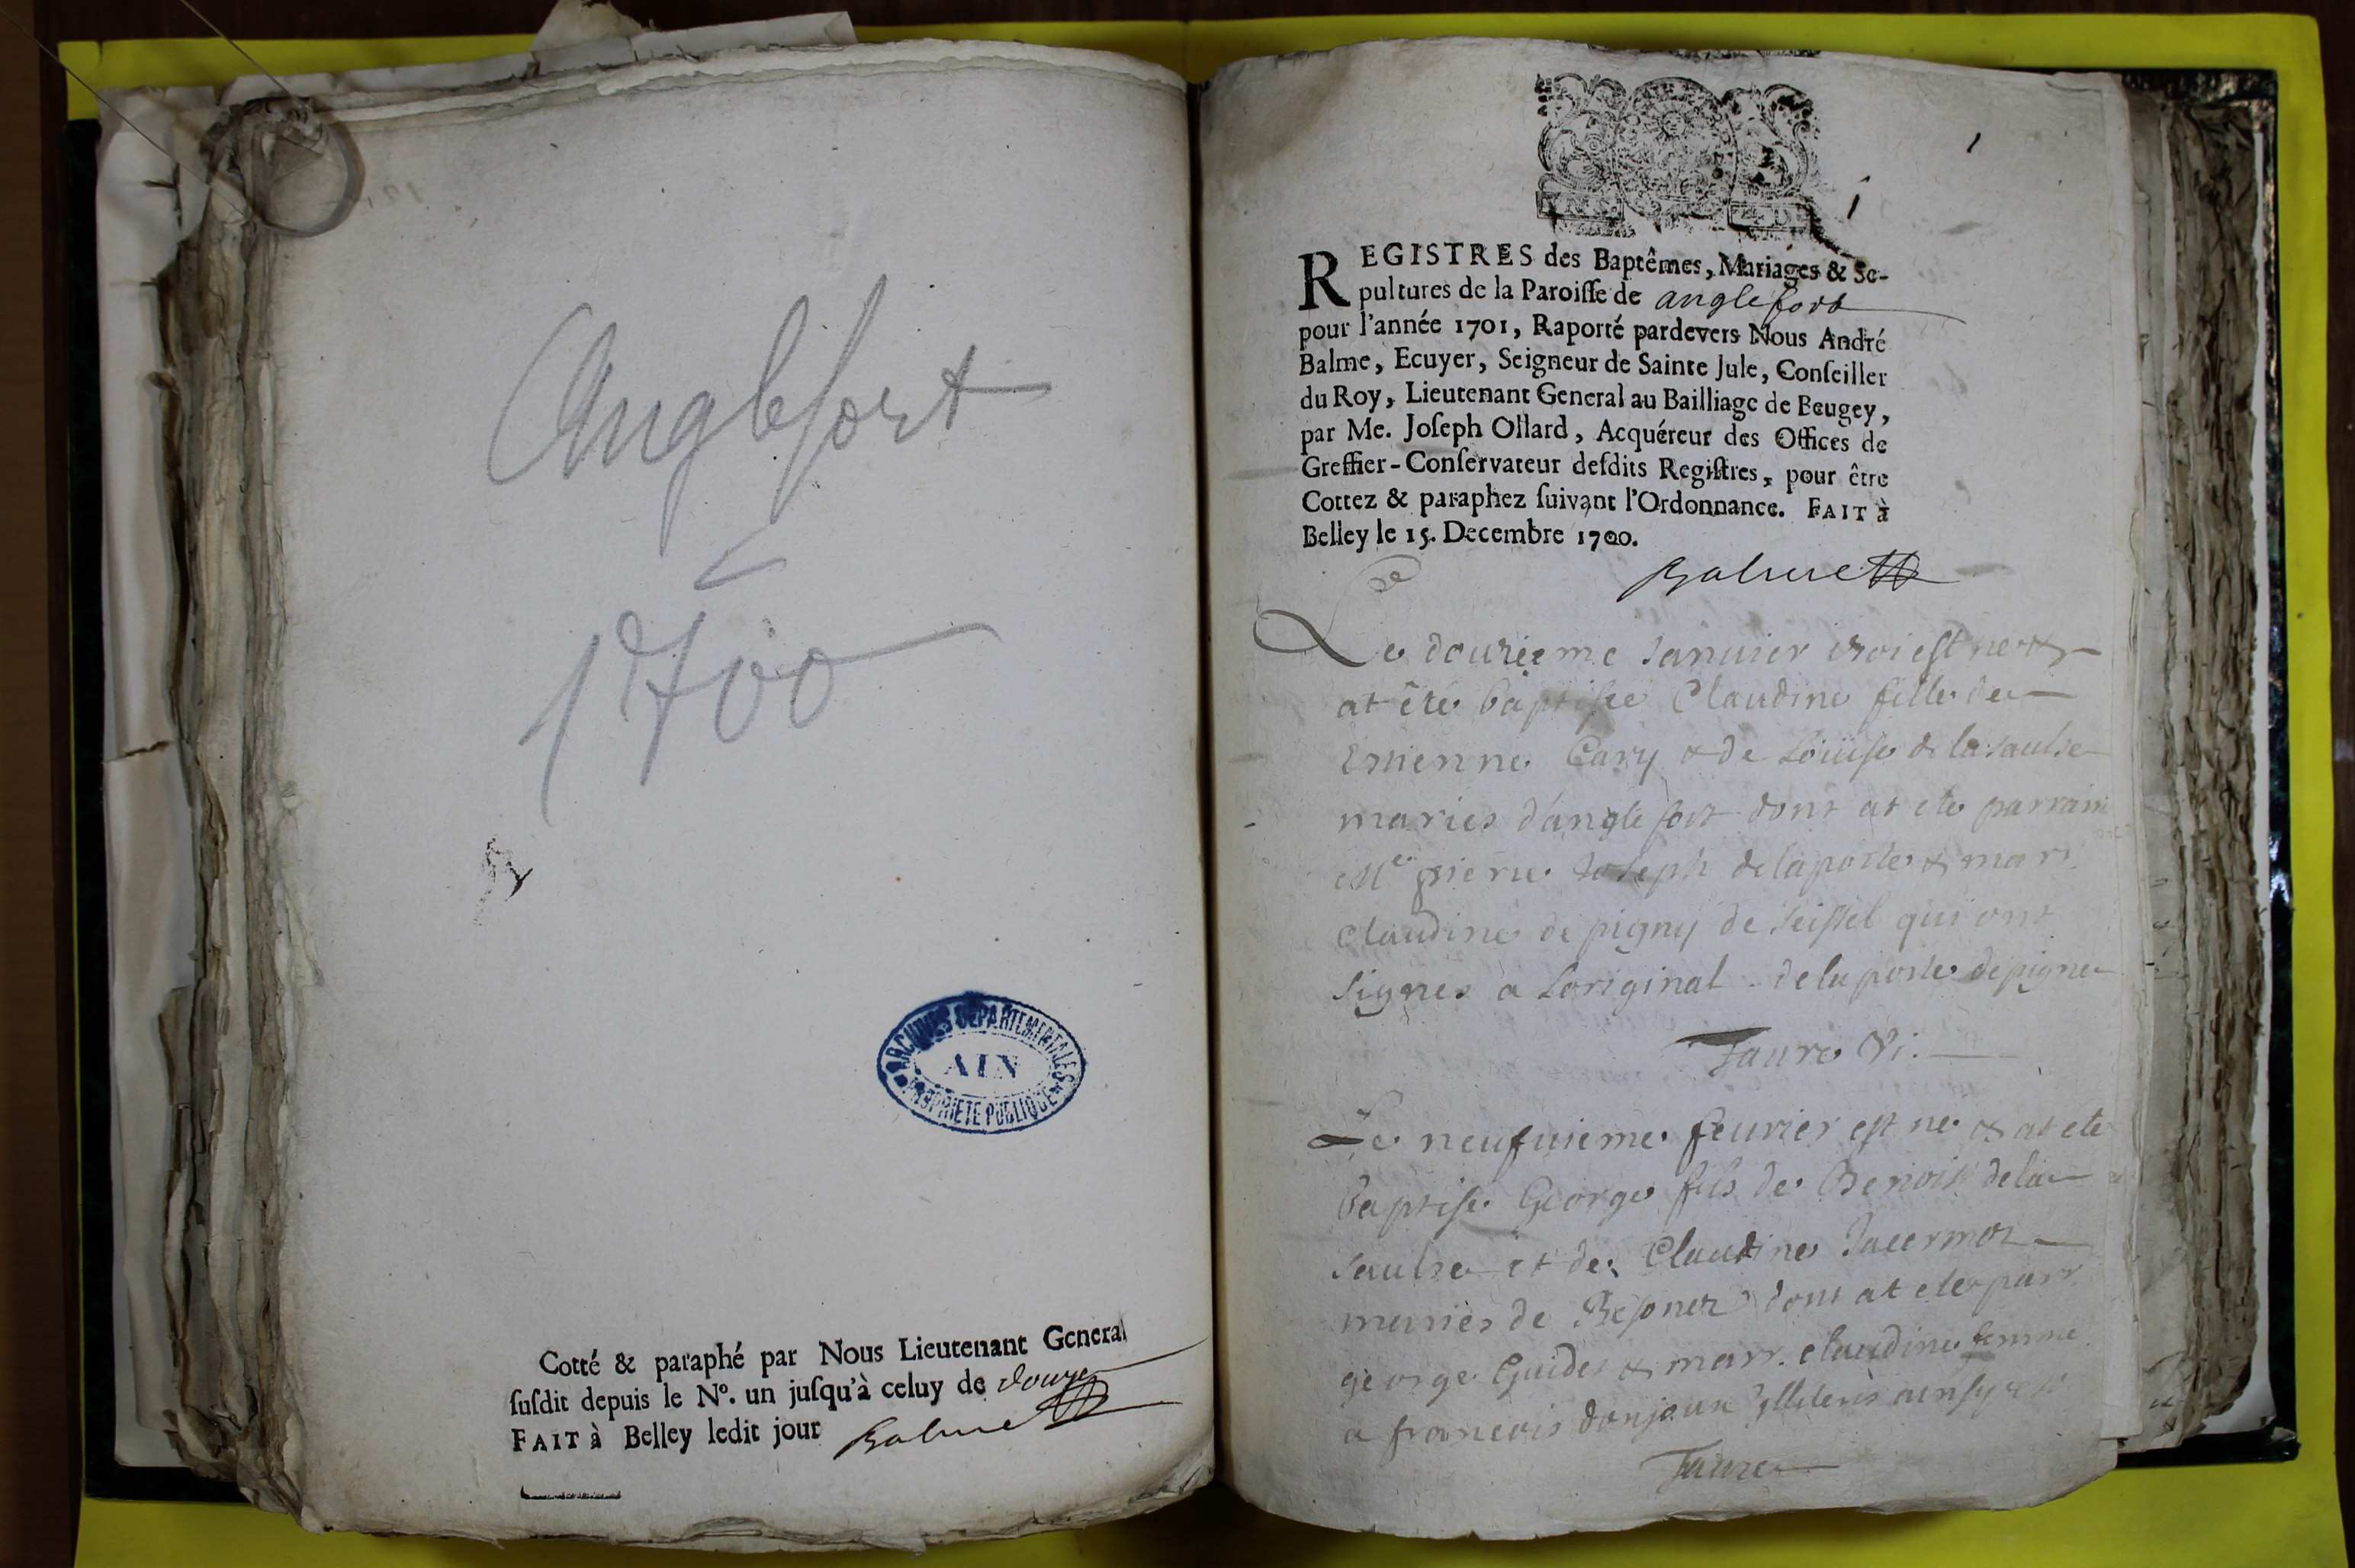 Anglefort
1700
ARCHIVES DEPARTEMENTALES
AIN
PROPRIETE PUBLIQUE
Cotté & paraphé par Nous Lieutenant General
ſuſdit depuis le Nº. un juſqu'à celuy de douze
FAIT à Belley ledit jour Balme
1
1
REGISTRES des Baptêmes, Mariages & Se-
pultures de la Paroiſſe de anglefort
pour l'année 1701, Raporté pardevers Nous André
Balme, Ecuyer, Seigneur de Sainte Jule, Conſeiller
du Roy, Lieutenant General au Bailliage de Beugey,
par Me. Joſeph Ollard, Acquéreur des Offices de
Greffier-Conſervateur deſdits Regiſtres, pour être
Cottez & paraphez ſuivant l'Ordonnance. FAIT à
Belley le 15. Decembre 1700.
Balme
Le douzieme Januier 1701 est nee &
at été baptisee Claudine fille de
Estienne Cary & de Loüise de la saulse
mariés d'anglefort dont at ete parrain
Me pierre Joseph delaposte & mar.
Claudine de pigny de Seissel qui ont
signes a Loriginal. delaposte depigner
Faure Vi.
Le neufuieme feurier est ne & at ete
baptise George fils de Benoit dela
saulse et de Claudine Jacermoz
mariés de Besonez dont at ete parr.
george Guidet & marr. claudine femme
a francois donjoux illiterés ainsy est
Faure